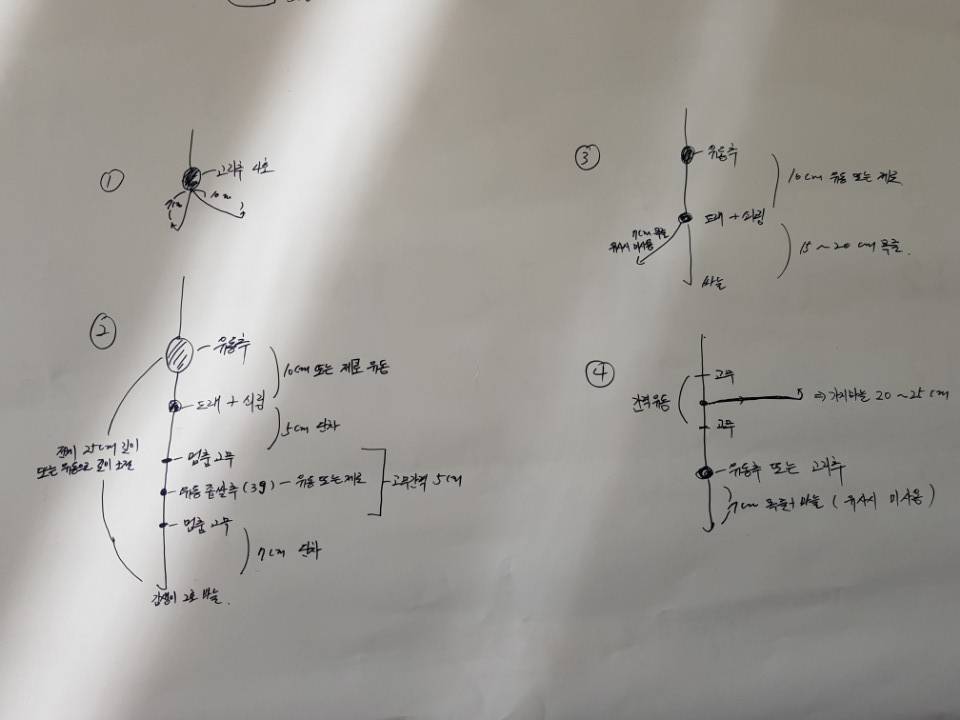 ①
고리추 4호
7cm
10cm
②
유동추
10cm 또는 제로 유동
도래 + 쇠링
5cm 단차
전체 25cm 길이
또는 유동으로 길이 조절
멈춤고무
유동 좁쌀추 (3g) - 유동 또는 제로
고무간격 5cm
멈춤 고무
7cm 단차
감성이 2호 바늘.
③
유동추
10cm 유동 또는 제로
도래 + 쇠링
7cm 목줄
유사시 미사용
15 ~ 20cm 목줄.
바늘
④
고무
간격유동
⇒ 가지바늘 20 ~ 25cm
고무
유동추 또는 고리추
7cm 목줄+바늘 (유사시 미사용)